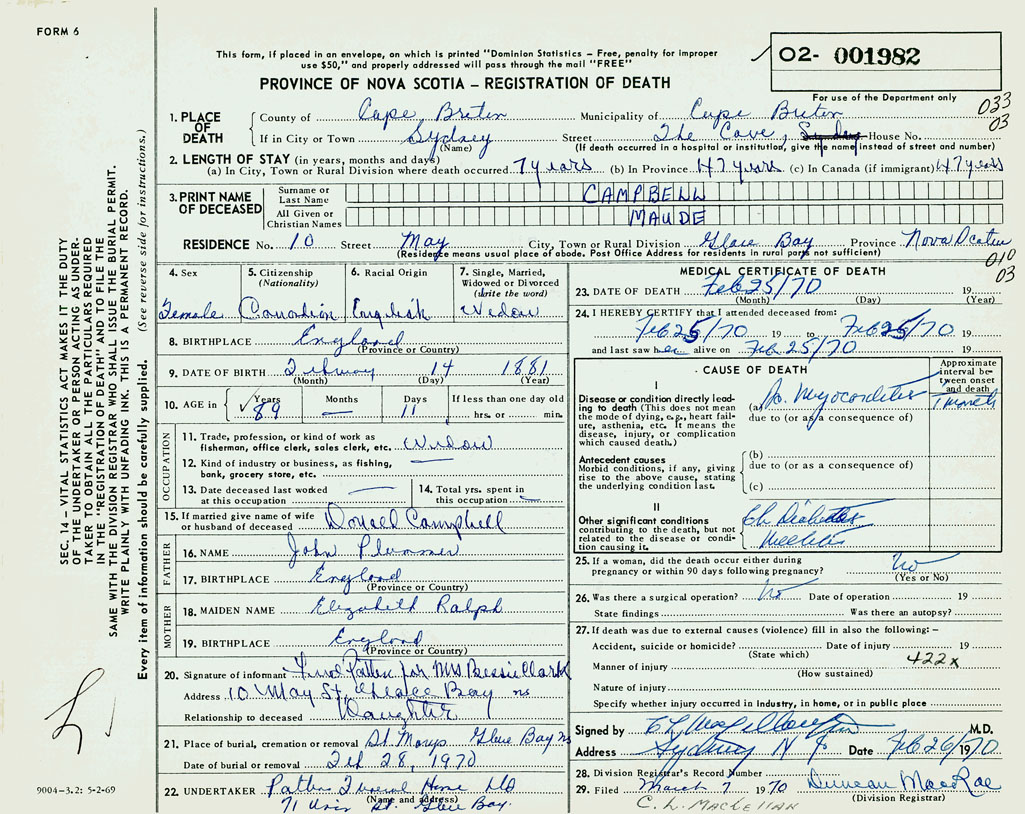 FORM 6
This form, if placed in an envelope, on which is printed "Dominion Statistics – Free, penalty for improper
use $50," and properly addressed will pass through the mail "FREE"
PROVINCE OF NOVA SCOTIA – REGISTRATION OF DEATH
O2- 001982
For use of the Department only
033
03
SEC. 14 – VITAL STATISTICS ACT MAKES IT THE DUTY
OF THE UNDERTAKER OR PERSON ACTING AS UNDER-
TAKER TO OBTAIN ALL THE PARTICULARS REQUIRED
IN THE "REGISTRATION OF DEATH" AND TO FILE THE
SAME WITH THE DIVISION REGISTRAR WHO SHALL ISSUE THE BURIAL PERMIT.
WRITE PLAINLY WITH UNFADING INK. THIS IS A PERMANENT RECORD.
Every item of information should be carefully supplied. (See reverse side for instructions.)
1. PLACE OF DEATH County of Cape Breton Municipality of Cape Breton
If in City or Town Sydney Street The Cove, Sydney House No.
(Name) (If death occurred in a hospital or institution, give the name instead of street and number)
2. LENGTH OF STAY (in years, months and days)
(a) In City, Town or Rural Division where death occurred 7 years (b) In Province 47 years (c) In Canada (if immigrant) 47 years
3. PRINT NAME OF DECEASED Surname or Last Name CAMPBELL
All Given or Christian Names MAUDE
RESIDENCE No. 10 Street May City, Town or Rural Division Glace Bay Province Nova Scotia
(Residence means usual place of abode. Post Office Address for residents in rural parts not sufficient)
010
03
4. Sex Female
5. Citizenship (Nationality) Canadian
6. Racial Origin English
7. Single, Married, Widowed or Divorced (write the word) Widow
8. BIRTHPLACE England
(Province or Country)
9. DATE OF BIRTH February 14 1881
(Month) (Day) (Year)
10. AGE in Years 89 Months — Days 11 If less than one day old
hrs. or min.
OCCUPATION
11. Trade, profession, or kind of work as
fisherman, office clerk, sales clerk, etc. Widow
12. Kind of industry or business, as fishing,
bank, grocery store, etc. —
13. Date deceased last worked
at this occupation —
14. Total yrs. spent in
this occupation —
15. If married give name of wife
or husband of deceased Donald Campbell
FATHER
16. NAME John Plummer
17. BIRTHPLACE England
(Province or Country)
MOTHER
18. MAIDEN NAME Elizabeth Ralph
19. BIRTHPLACE England
(Province or Country)
20. Signature of informant Patten for Mrs Bessie Clark
Address 10 May St, Glace Bay ns
Relationship to deceased Daughter
21. Place of burial, cremation or removal St. Marys Glace Bay ns
Date of burial or removal Feb 28, 1970
22. UNDERTAKER Patten Funeral Home Ltd
(Name and address)
71 Union St. Glace Bay.
9004–3.2: 5-2-69
MEDICAL CERTIFICATE OF DEATH
23. DATE OF DEATH Feb 25/70 19
(Month) (Day) (Year)
24. I HEREBY CERTIFY that I attended deceased from:
Feb 25/70 19 to Feb 25/70 19
and last saw her alive on Feb 25/70 19
CAUSE OF DEATH
Approximate interval between onset and death
I
Disease or condition directly lead-
ing to death (This does not mean
the mode of dying, e.g., heart fail-
ure, asthenia, etc. It means the
disease, injury, or complication
which caused death.)
(a) Myocarditis 1 month
due to (or as a consequence of)
Antecedent causes
Morbid conditions, if any, giving
rise to the above cause, stating
the underlying condition last.
(b)
due to (or as a consequence of)
(c)
II
Other significant conditions
contributing to the death, but not
related to the disease or condi-
tion causing it.
Ch Diabetes
Mellitus
25. If a woman, did the death occur either during
pregnancy or within 90 days following pregnancy? No
(Yes or No)
26. Was there a surgical operation? No Date of operation 19
State findings Was there an autopsy?
27. If death was due to external causes (violence) fill in also the following: –
Accident, suicide or homicide? Date of injury 19
(State which)
422x
Manner of injury
(How sustained)
Nature of injury
Specify whether injury occurred in industry, in home, or in public place
Signed by M.D.
Address Sydney N S Date Feb 26/1970
28. Division Registrar's Record Number
29. Filed March 7 1970 Duncan MacRae
(Division Registrar)
C. L. MacLellan